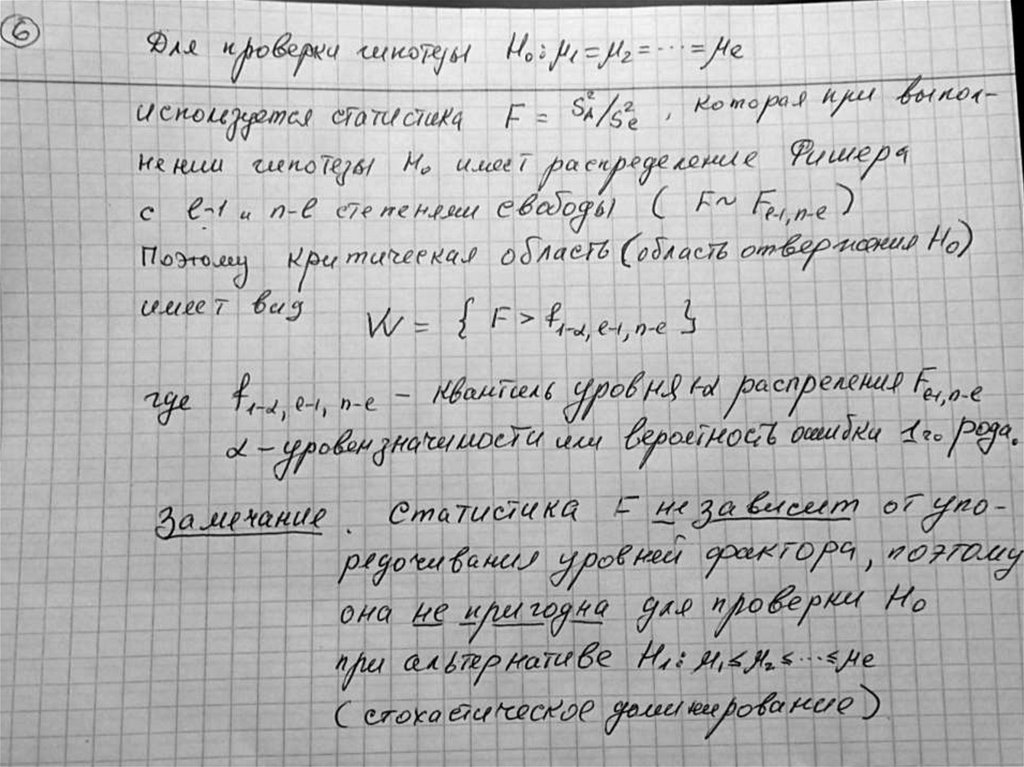 6
Для проверки гипотезы H₀: μ₁ = μ₂ = ⋯ = μₑ
используется статистика F = S²_A/S²_e, которая при выпол-
нении гипотезы H₀ имеет распределение Фишера
с ℓ-1 и n-ℓ степенями свободы ( F ~ F_{ℓ-1, n-ℓ} )
Поэтому критическая область (область отвержения H₀)
имеет вид
W = { F > f_{1-α, ℓ-1, n-ℓ} }
где f_{1-α, ℓ-1, n-ℓ} – квантиль уровня 1-α распреления F_{ℓ-1, n-ℓ}
α – уровен значимости или вероятность ошибки 1го рода.
Замечание. Статистика F не зависит от упо-
редочивания уровней фактора, поэтому
она не пригодна для проверки H₀
при альтернативе H₁: μ₁ ≤ μ₂ ≤ ⋯ ≤ μₑ
(стохастическое доминирование)